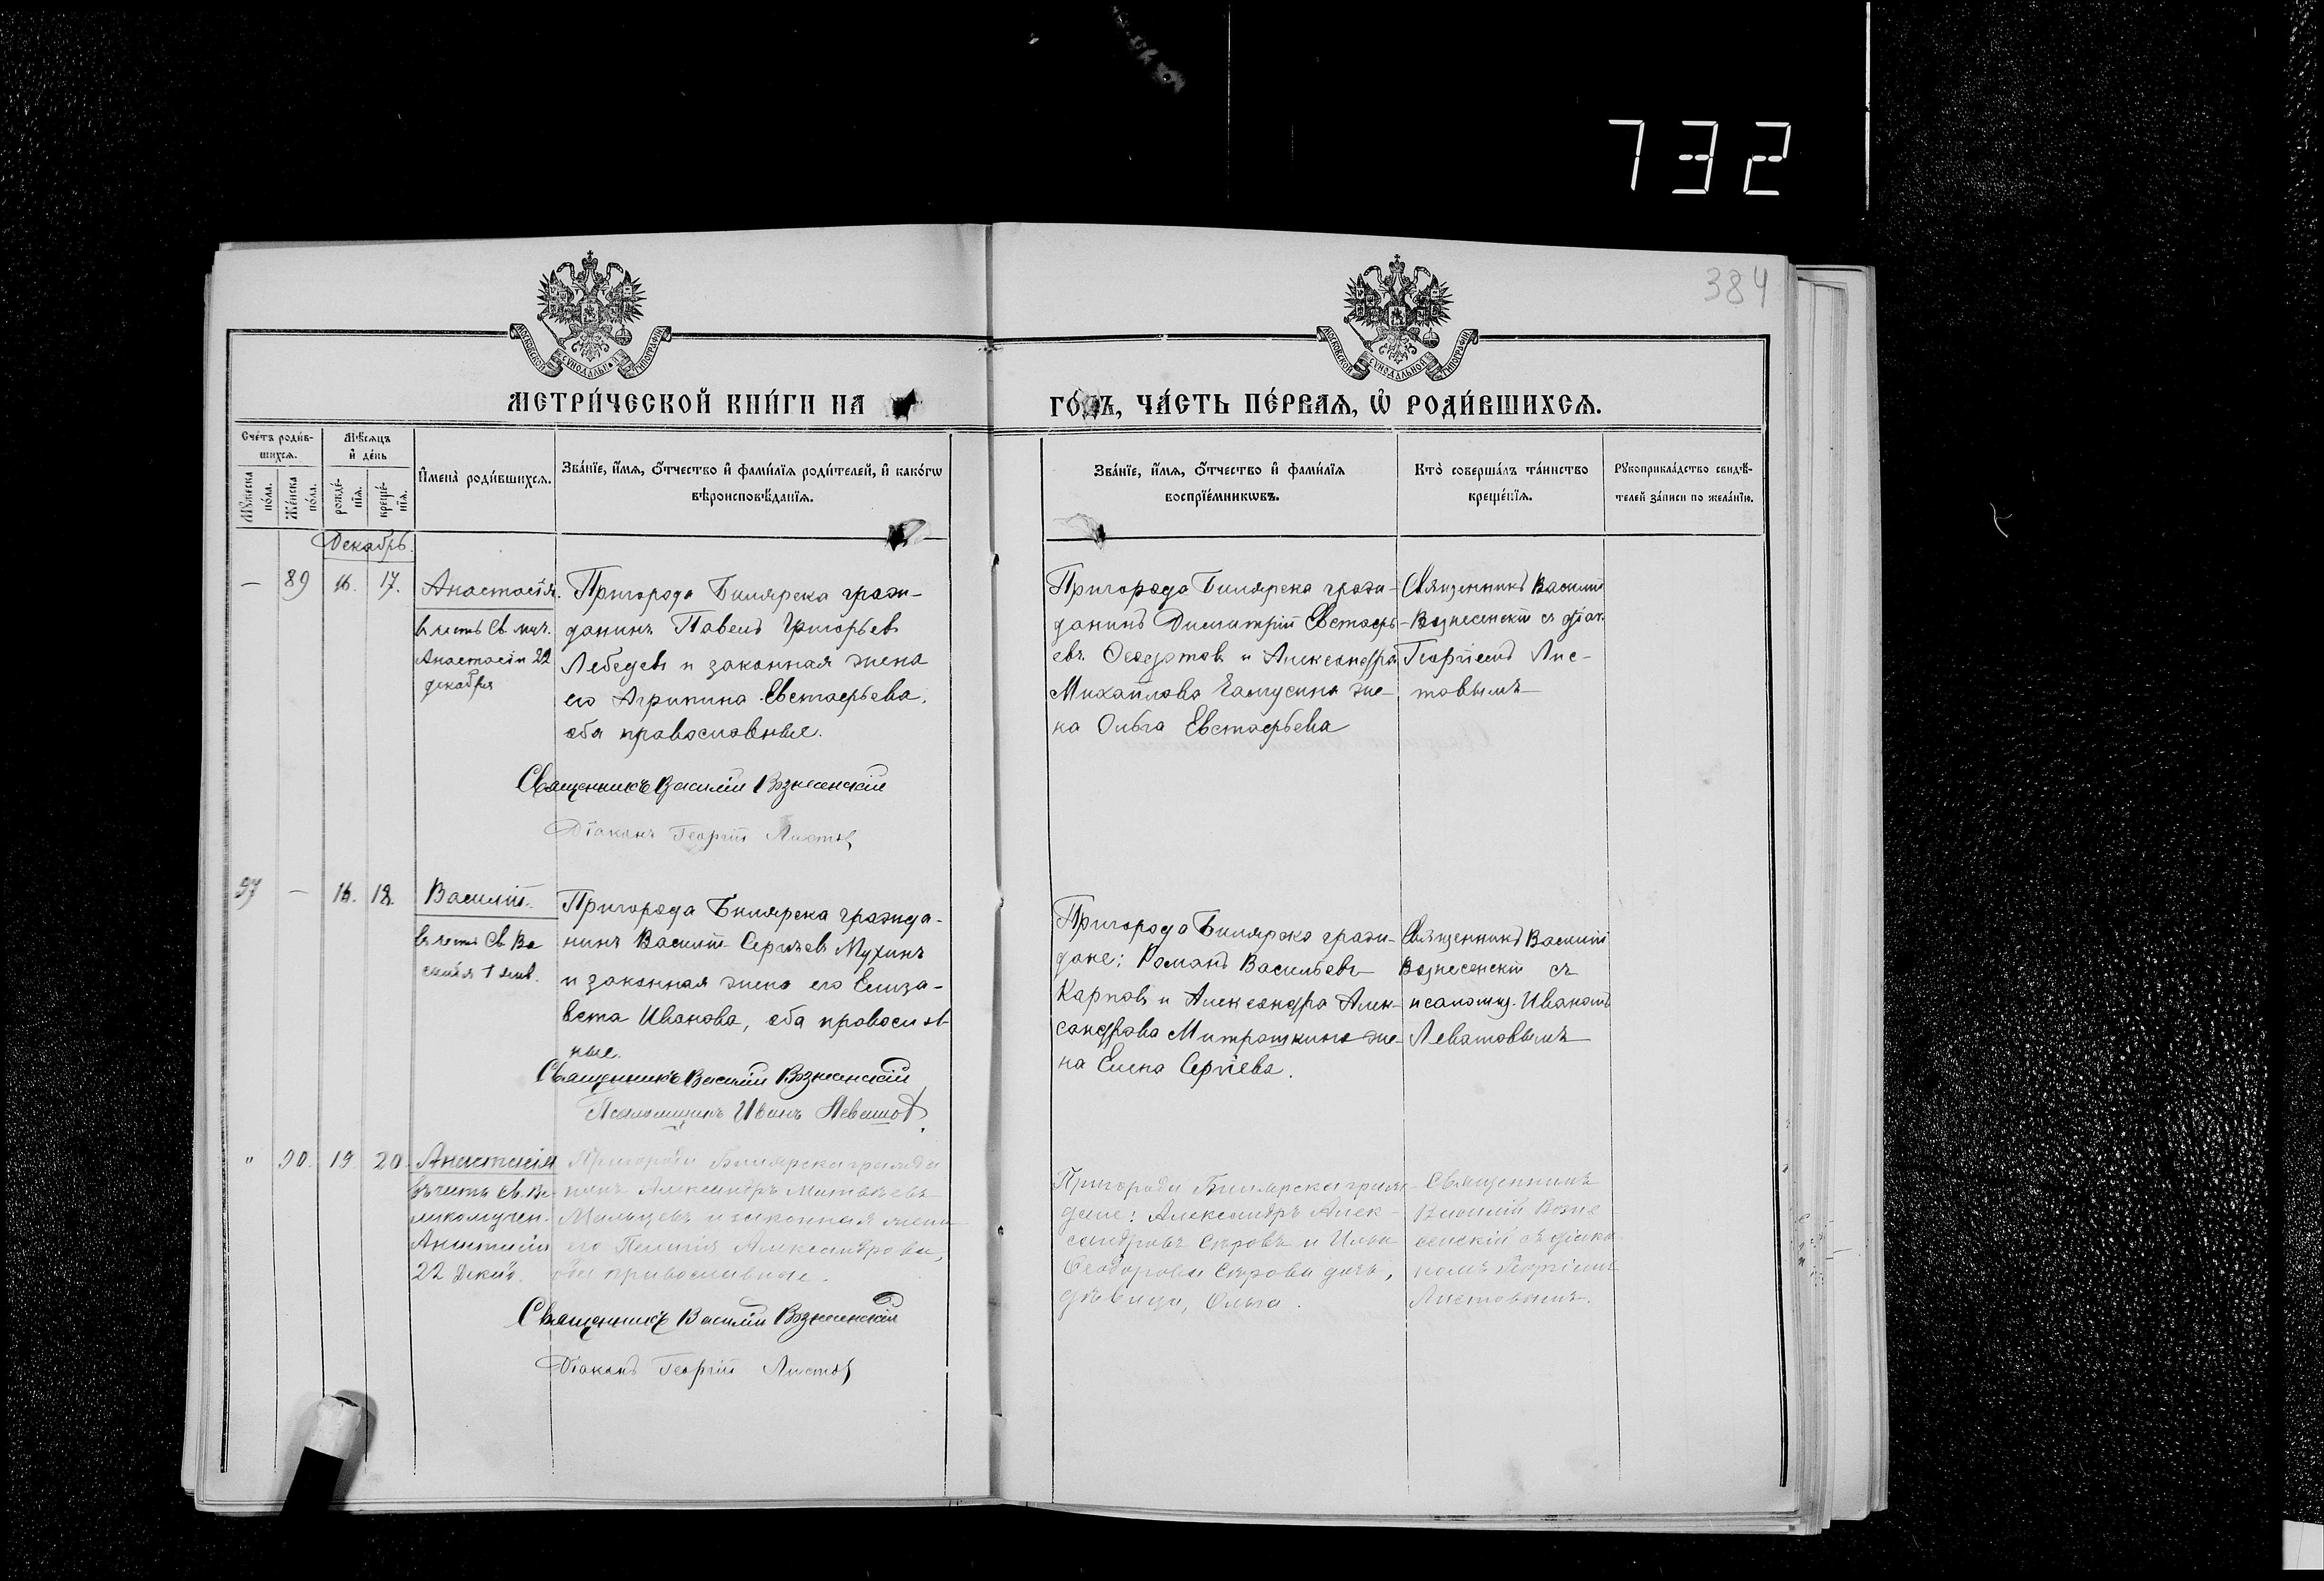 732
384
МОСКОВСКОЙ СѴНОДАЛЬНОЙ ТИПОГРАФІИ
МОСКОВСКОЙ СѴНОДАЛЬНОЙ ТИПОГРАФІИ
МЕТРИ́ЧЕСКОЙ КНИ́ГИ НА
ГО́ДЪ, ЧА́СТЬ ПЕ́РВАѦ, Ѡ҆ РОДИ́ВШИХСѦ.
Сче́тъ роди́в-
шихсѧ.
Мѣ́сѧцъ
и҆ де́нь
Мꙋ́жеска по́ла.
Же́нска по́ла.
рожде́-
нїѧ.
креще́-
нїѧ.
И҆мена̀ роди́вшихсѧ.
Зва́нїе, и҆́мѧ, ѻ҆́тчество и҆ фами́лїѧ роди́телей, и҆ како́гѡ
вѣроисповѣ́данїѧ.
Зва́нїе, и҆́мѧ, ѻ҆́тчество и҆ фами́лїѧ
воспрїе́мникѡвъ.
Кто̀ соверша́лъ та́инство
креще́нїѧ.
Рꙋкоприкла́дство свидѣ́-
телей за́писи по жела́нїю.
Декабрь.
— 89 16. 17. Анастасія.
въ честь Св. муч.
Анастасіи 22
декабря
Пригорода Билярска граж-
данинъ Павелъ Григорьевъ
Лебедевъ и законная жена
его Агрипина Евстафьева,
оба православные.
Священникъ Василій Вознесенскій
Діаконъ Георгій Листовъ
Пригорода Билярска граж-
данинъ Димитрій Евстафь-
евъ и Александра
Михайлова жe-
на Ольга Евстафьева
Священникъ Василій
Вознесенскій съ діак.
Георгіемъ Лис-
товымъ
97 — 16. 18. Василій.
въ честь Св. Ва
силія 1 янв.
Пригорода Билярска гражда-
нинъ Василій Сергѣевъ Мухинъ
и законная жена его Елиза-
вета Иванова, оба православ-
ные.
Священникъ Василій Вознесенскій
Псаломщикъ Иванъ Левашовъ
Пригорода Билярска граж-
дане: Романъ Васильевъ
Карповъ и Александра Алек-
сандрова Митрошкина же-
на Елена Сергіева.
Священникъ Василій
Вознесенскій съ
псаломщ. Иваномъ
Левашовымъ
" 90. 19. 20. Анастасія
въ честь св. Ве-
ликомучен.
Анастасіи
22 Декаб.
Пригорода Билярска гражда
нинъ Александръ Матвѣевъ
Мальцевъ и законная жена
его Пелагія Александрова,
оба православные.
Священникъ Василій Вознесенскій
Діаконъ Георгій Листовъ
Пригорода Билярска граж-
дане: Александръ Алек-
сандровъ Сѣровъ и
Ѳеодорова Сѣрова дочь,
дѣвица, Ольга.
Священникъ
Василій Возне
сенскій съ діако
номъ Георгіемъ
Листовымъ.